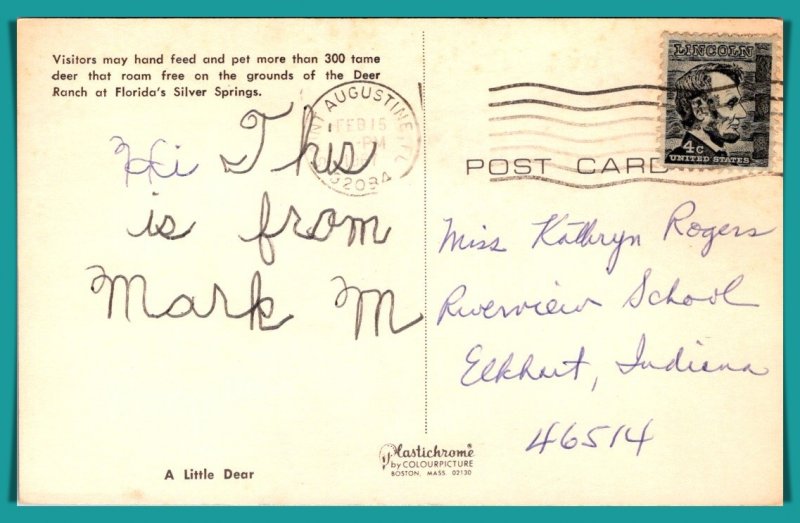 Visitors may hand feed and pet more than 300 tame
deer that roam free on the grounds of the Deer
Ranch at Florida's Silver Springs.
Hi This
is from
Mark M
A Little Dear
Plastichrome
by COLOURPICTURE
BOSTON, MASS. 02130
AUGUSTINE, FL
FEB 15
PM
32084
LINCOLN
4c
UNITED STATES
POST CARD
Miss Kathryn Rogers
Riverview School
Elkhart, Indiana
46514